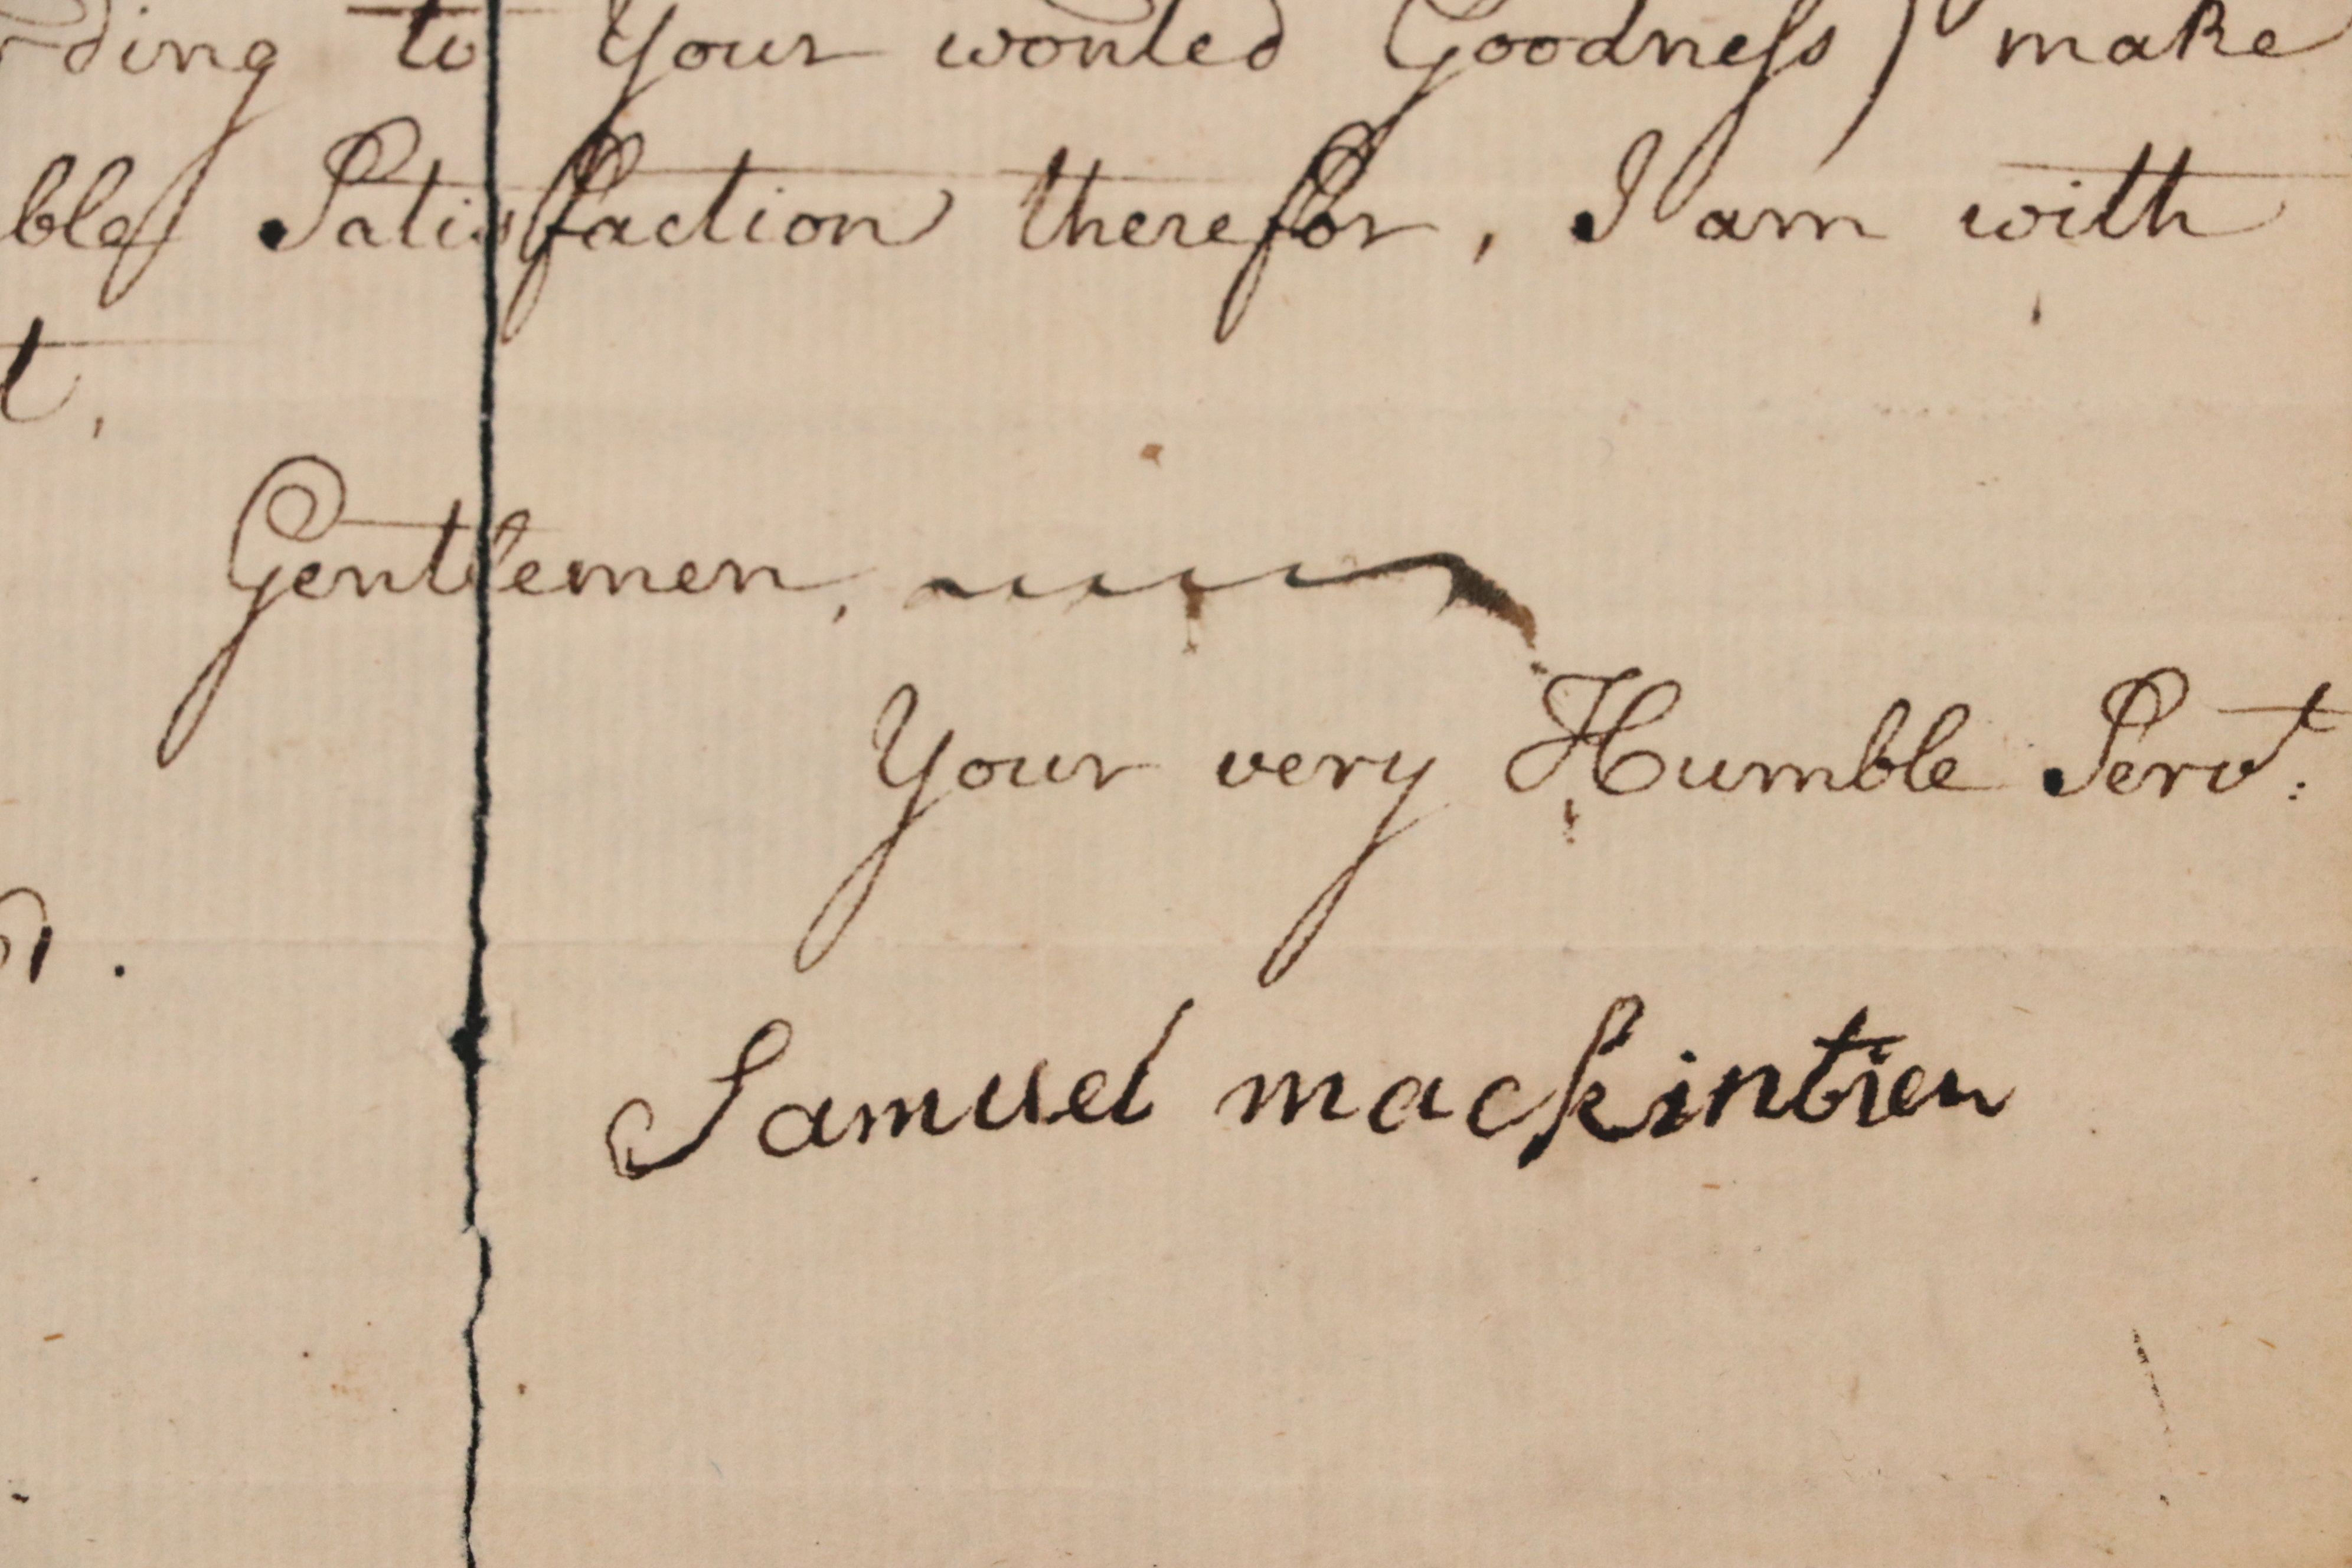 ding to Your wonted Goodness) make
ble Satisfaction therefor, I am with
t,
Gentlemen,
Your very Humble Servt:
Samuel mackintier